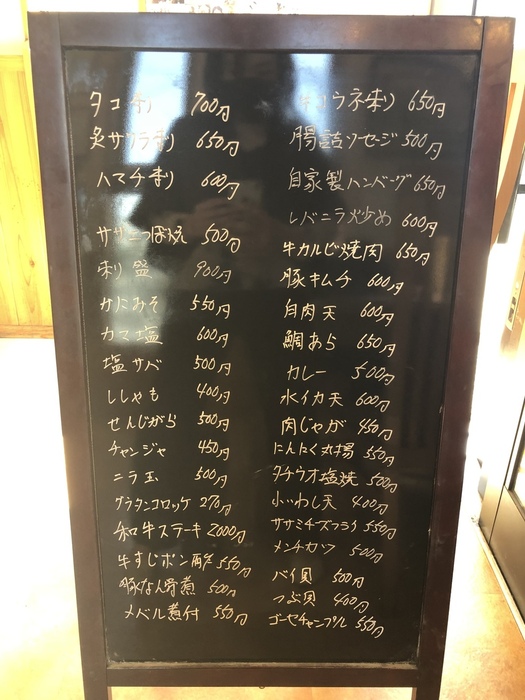 タコ刺 700円
炙サワラ刺 650円
ハマチ刺 600円
サザエつぼ焼 500円
刺盛 900円
かにみそ 550円
カマ塩 600円
塩サバ 500円
ししゃも 400円
せんじがら 500円
チャンジャ 450円
ニラ玉 500円
グラタンコロッケ 270円
和牛ステーキ 2000円
牛すじポン酢 550円
豚なん骨煮 500円
メバル煮付 550円
ウネ刺 650円
腸詰ソセージ 500円
自家製ハンバーグ 650円
レバニラ炒め 600円
牛カルビ焼肉 650円
豚キムチ 600円
白肉天 600円
鯛あら 650円
カレー 500円
水イカ天 600円
肉じゃが 450円
にんにく丸揚 350円
タチウオ塩焼 500円
小いわし天 400円
ササミチーズフライ 550円
メンチカツ 500円
バイ貝 500円
つぶ貝 400円
ゴーヤチャンプル 550円